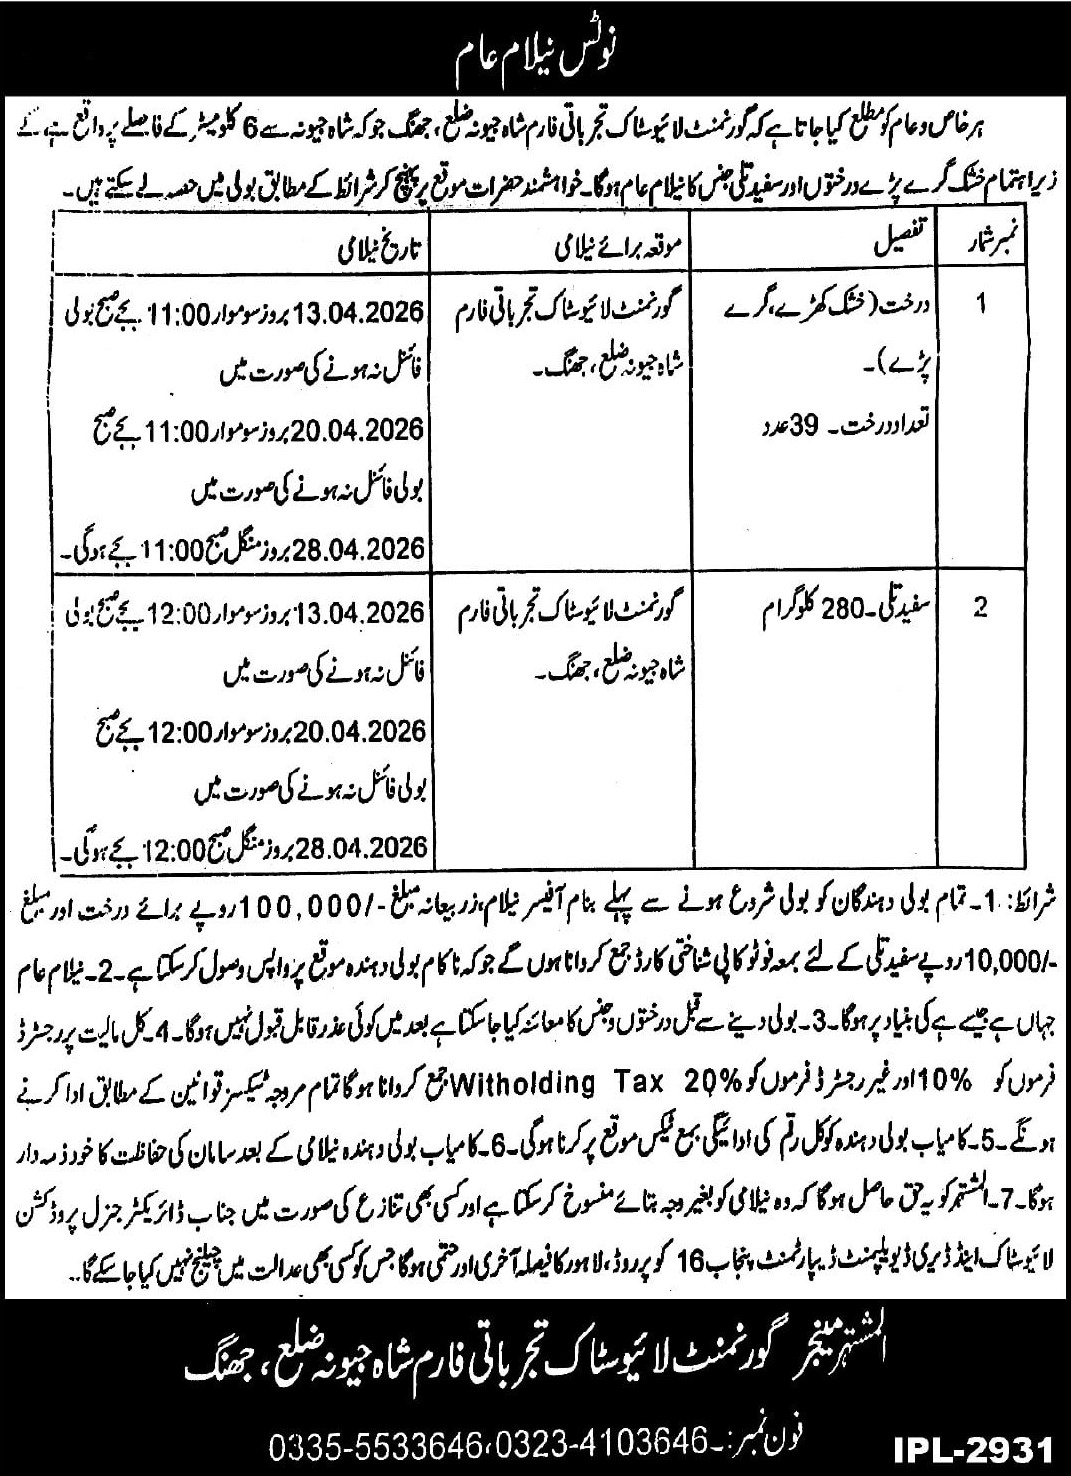 نوٹس نیلام عام
ہر خاص و عام کو مطلع کیا جاتا ہے کہ گورنمنٹ لائیوسٹاک تجرباتی فارم شاہ جیونہ ضلع، جھنگ جو کہ شاہ جیونہ سے 6 کلومیٹر کے فاصلے پر واقع ہے، کے
زیر اہتمام خشک گرے پڑے درختوں اور سفید تلی جنس کا نیلام عام ہوگا۔ خواہشمند حضرات موقع پر پہنچ کر شرائط کے مطابق بولی میں حصہ لے سکتے ہیں۔
نمبر شمار تفصیل موقعہ برائے نیلامی تاریخ نیلامی
1 درخت (خشک کھڑے، گرے گورنمنٹ لائیوسٹاک تجرباتی فارم 13.04.2026 بروز سوموار 11:00 بجے صبح بولی
پڑے)۔ شاہ جیونہ ضلع، جھنگ۔ فائنل نہ ہونے کی صورت میں
تعداد درخت۔ 39 عدد 20.04.2026 بروز سوموار 11:00 بجے صبح
بولی فائنل نہ ہونے کی صورت میں
28.04.2026 بروز منگل صبح 11:00 بجے ہوگی۔
2 سفید تلی۔ 280 کلوگرام گورنمنٹ لائیوسٹاک تجرباتی فارم 13.04.2026 بروز سوموار 12:00 بجے صبح بولی
شاہ جیونہ ضلع، جھنگ۔ فائنل نہ ہونے کی صورت میں
20.04.2026 بروز سوموار 12:00 بجے صبح
بولی فائنل نہ ہونے کی صورت میں
28.04.2026 بروز منگل صبح 12:00 بجے ہوگی۔
شرائط: 1۔ تمام بولی دہندگان کو بولی شروع ہونے سے پہلے بنام آفیسر نیلام، زربیعانہ مبلغ -/100,000 روپے برائے درخت اور مبلغ
-/10,000 روپے سفید تلی کے لئے بمعہ فوٹو کاپی شناختی کارڈ جمع کروانا ہوں گے جو کہ ناکام بولی دہندہ موقع پر واپس وصول کر سکتا ہے۔ 2۔ نیلام عام
جہاں ہے جیسے ہے کی بنیاد پر ہوگا۔ 3۔ بولی دینے سے قبل درختوں و جنس کا معائنہ کیا جا سکتا ہے بعد میں کوئی عذر قابل قبول نہیں ہوگا۔ 4۔ کل مالیت پر رجسٹرڈ
فرموں کو 10% اور غیر رجسٹرڈ فرموں کو 20% Witholding Tax جمع کروانا ہوگا تمام مروجہ ٹیکسز قوانین کے مطابق ادا کرنے
ہونگے۔ 5۔ کامیاب بولی دہندہ کو کل رقم کی ادائیگی بمع ٹیکس موقع پر کرنا ہوگی۔ 6۔ کامیاب بولی دہندہ نیلامی کے بعد سامان کی حفاظت کا خود ذمہ دار
ہوگا۔ 7۔ المشتہر کو یہ حق حاصل ہوگا کہ وہ نیلامی کو بغیر وجہ بتائے منسوخ کر سکتا ہے اور کسی بھی تنازع کی صورت میں جناب ڈائریکٹر جنرل پروڈکشن
لائیوسٹاک اینڈ ڈیری ڈیویلپمنٹ ڈیپارٹمنٹ پنجاب 16 کوپر روڈ، لاہور کا فیصلہ آخری اور حتمی ہوگا جس کو کسی بھی عدالت میں چیلنج نہیں کیا جا سکے گا۔
المشتہر مینجر گورنمنٹ لائیوسٹاک تجرباتی فارم شاہ جیونہ ضلع، جھنگ
فون نمبر:۔ 0323-4103646، 0335-5533646
IPL-2931